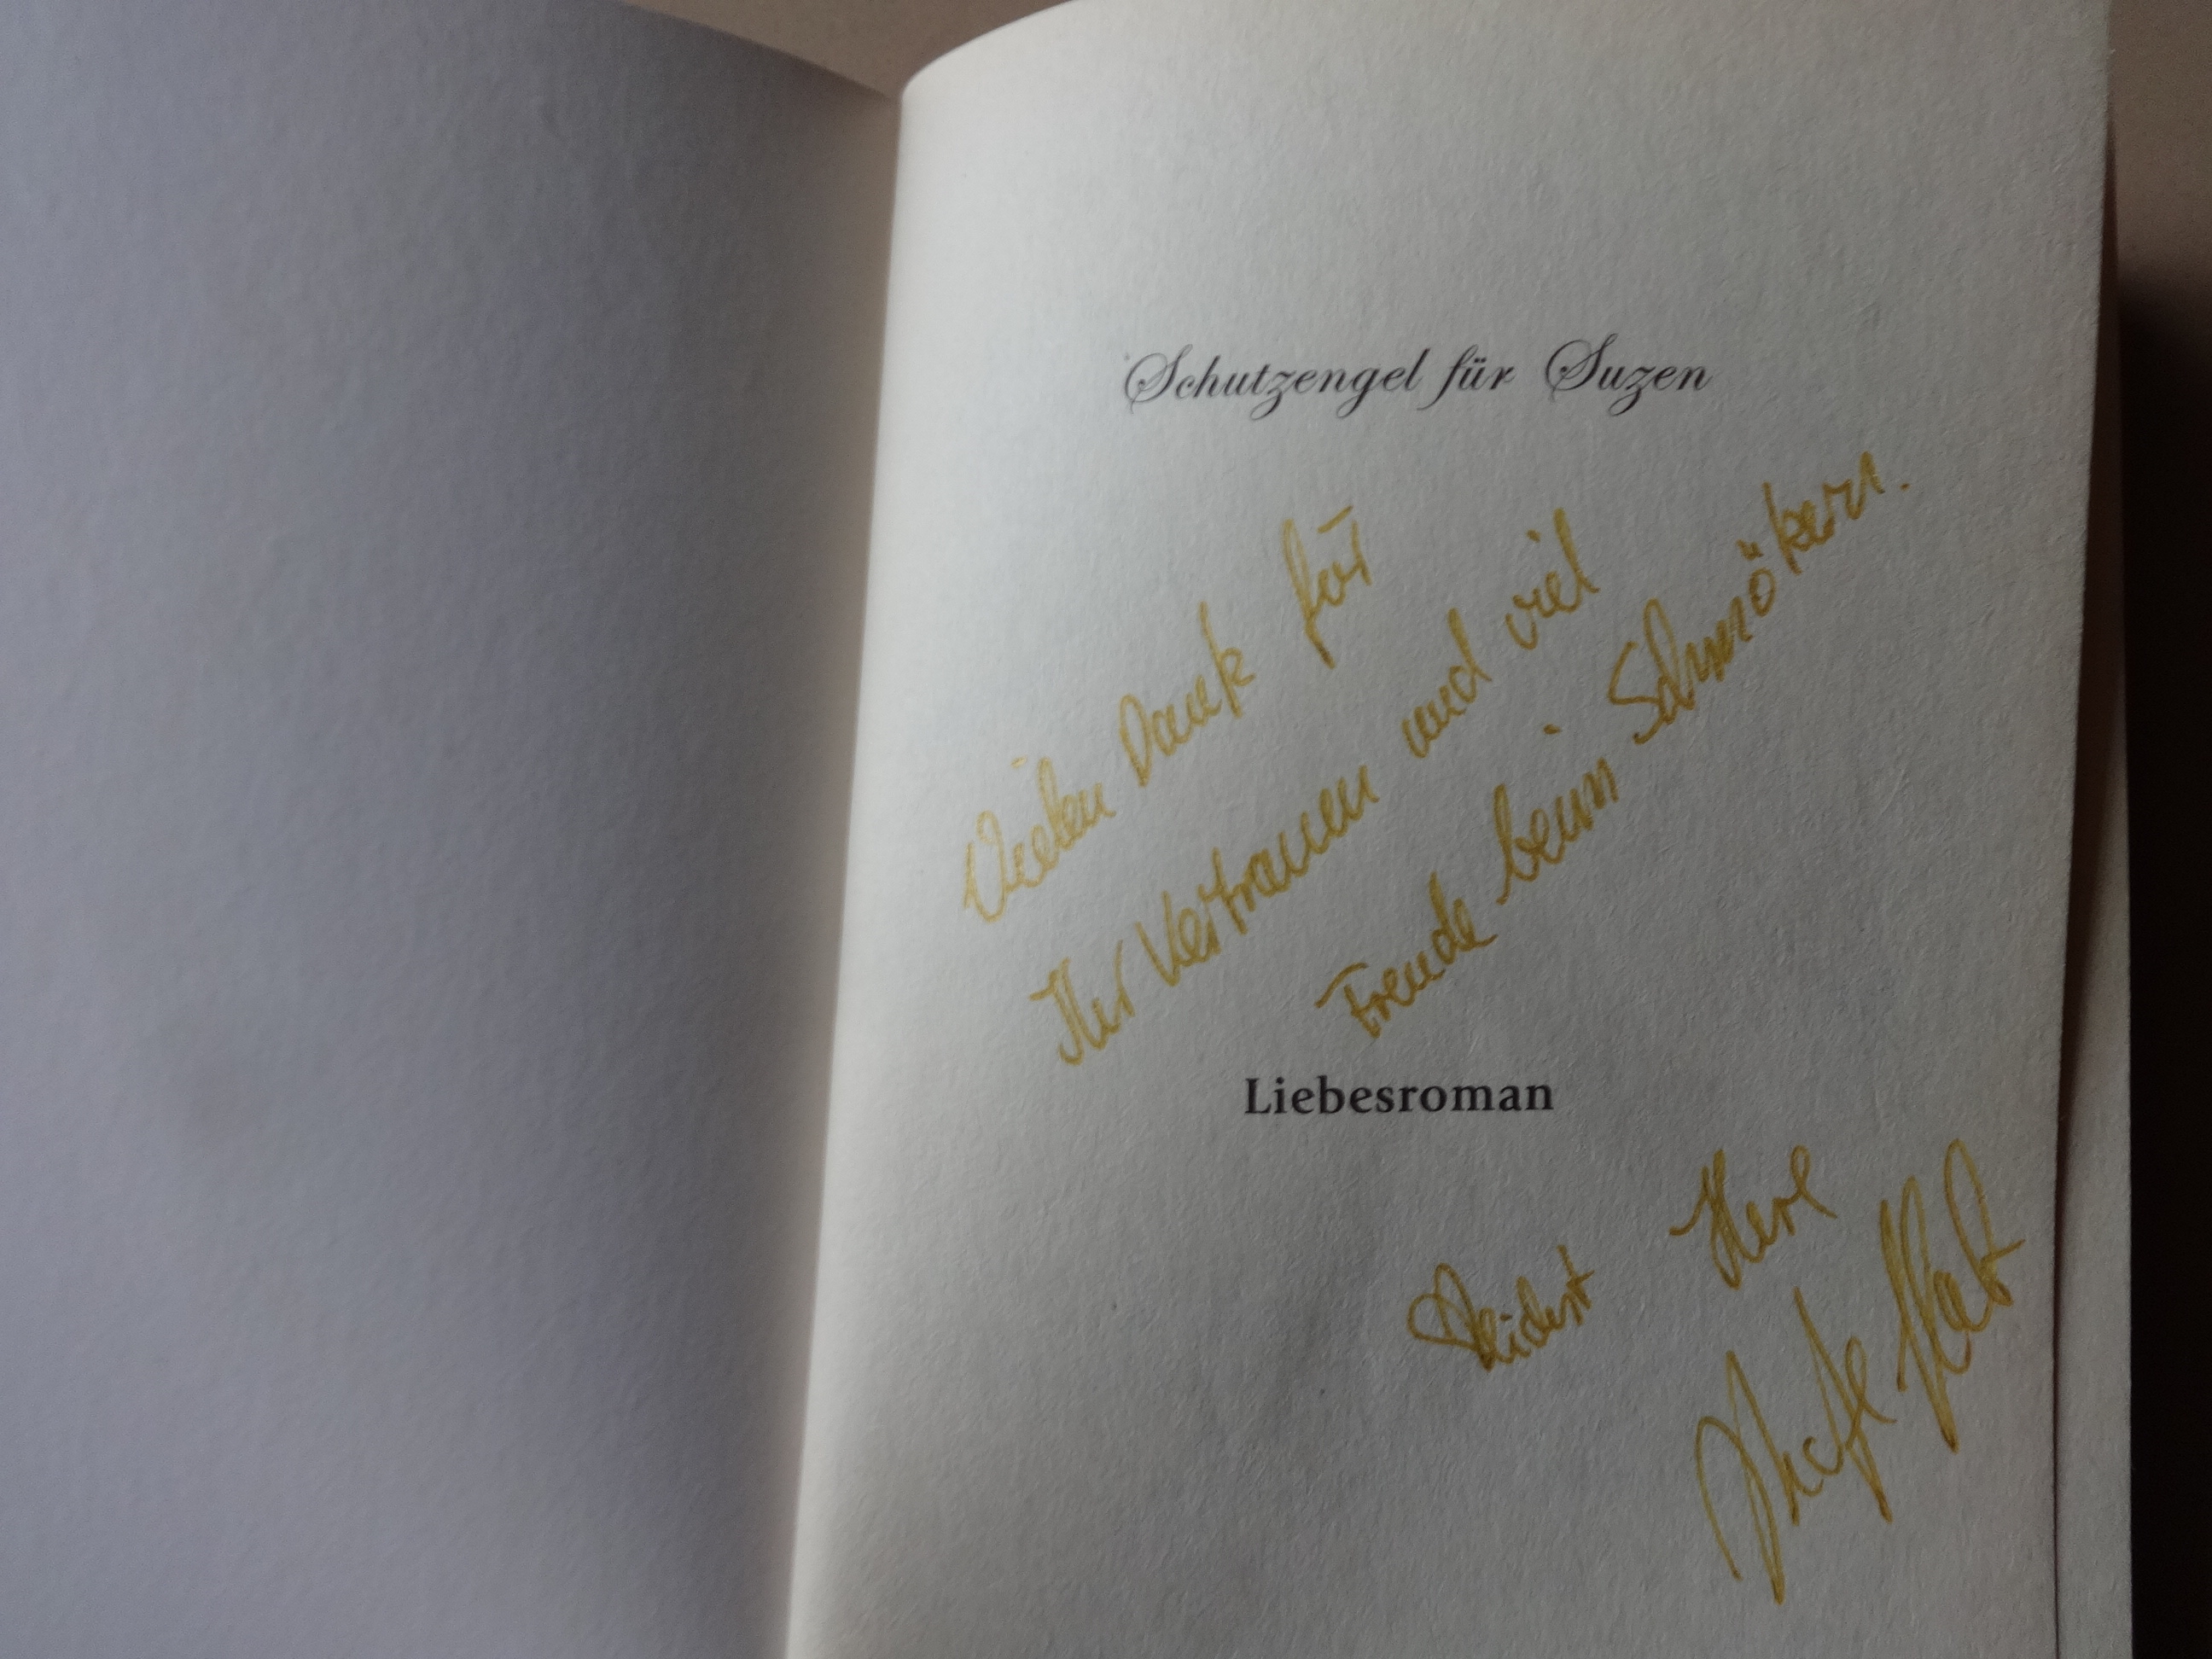 Schutzengel für Suzen
Vielen Dank für
Ihr Vertrauen und viel
Freude beim Schmökern.
Liebesroman
Ihre